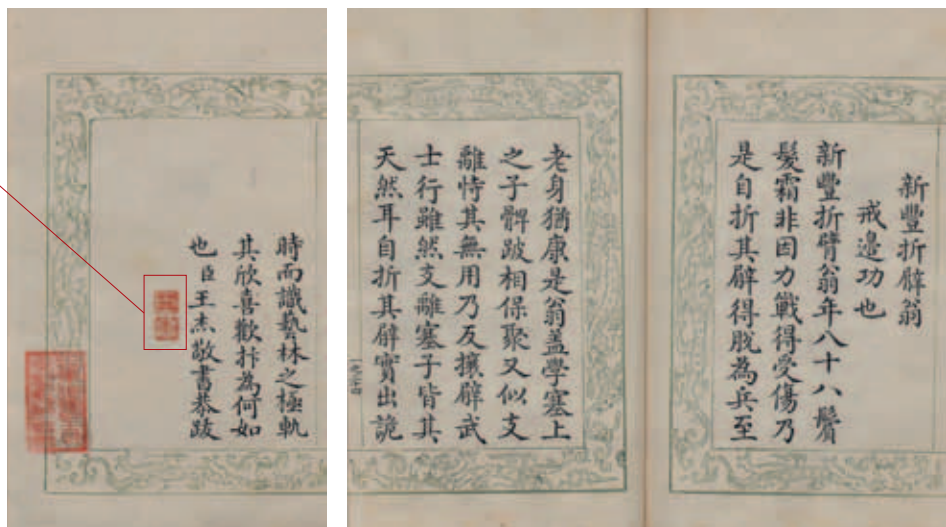 新豐折臂翁
戒邊功也
新豐折臂翁年八十八鬢
髮霜非因力戰得受傷乃
是自折其臂得脫為兵至
老身猶康是翁盖學塞上
之子髀跛相保聚又似支
離恃其無用乃反攘臂武
士行雖然支離塞子皆其
天然耳自折其臂實出詭
時而識藝林之極軌
其欣喜歡抃為何如
也臣王杰敬書恭跋